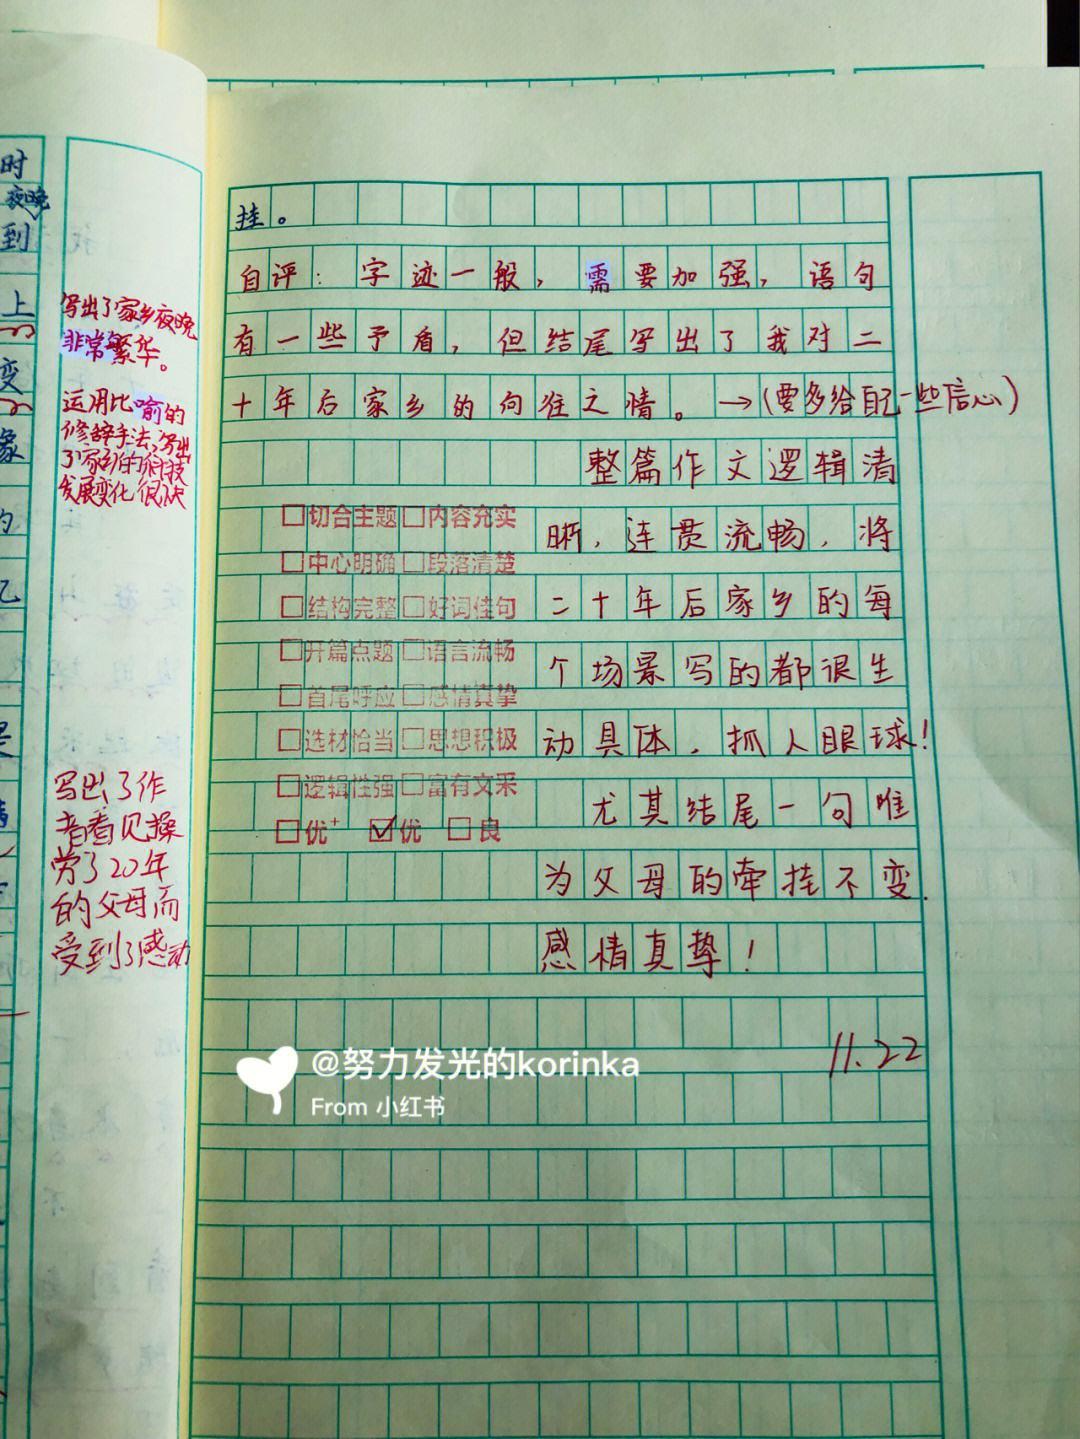 时
夜晚
到
上
变
象
的
忆
是
写出了家乡夜晚
非常繁华。
运用比喻的
修辞手法,写出
了家乡的科技
发展变化很快
写出了作
者看见操
劳了20年
的父母而
受到了感动
挂。
自评：字迹一般，需要加强，语句
有一些予盾，但结尾写出了我对二
十年后家乡的向往之情。→(要多给自己一些信心)
整篇作文逻辑清
晰，连贯流畅，将
二十年后家乡的每
个场景写的都很生
动具体，抓人眼球！
尤其结尾一句唯
为父母的牵挂不变.
感情真挚！
11.22
□切合主题□内容充实
□中心明确□段落清楚
□结构完整□好词佳句
□开篇点题□语言流畅
□首尾呼应□感情真挚
□选材恰当□思想积极
□逻辑性强□富有文采
□优⁺ ☑优 □良
@努力发光的korinka
From 小红书